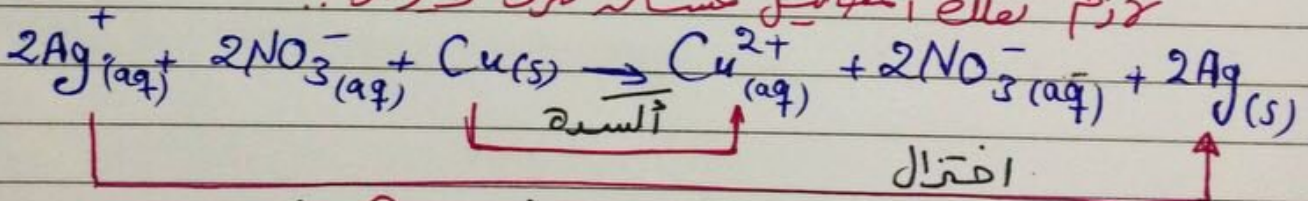 2Ag⁺(aq) + 2NO₃⁻(aq) + Cu(s) → Cu²⁺(aq) + 2NO₃⁻(aq) + 2Ag(s)
أكسدة
اختزال